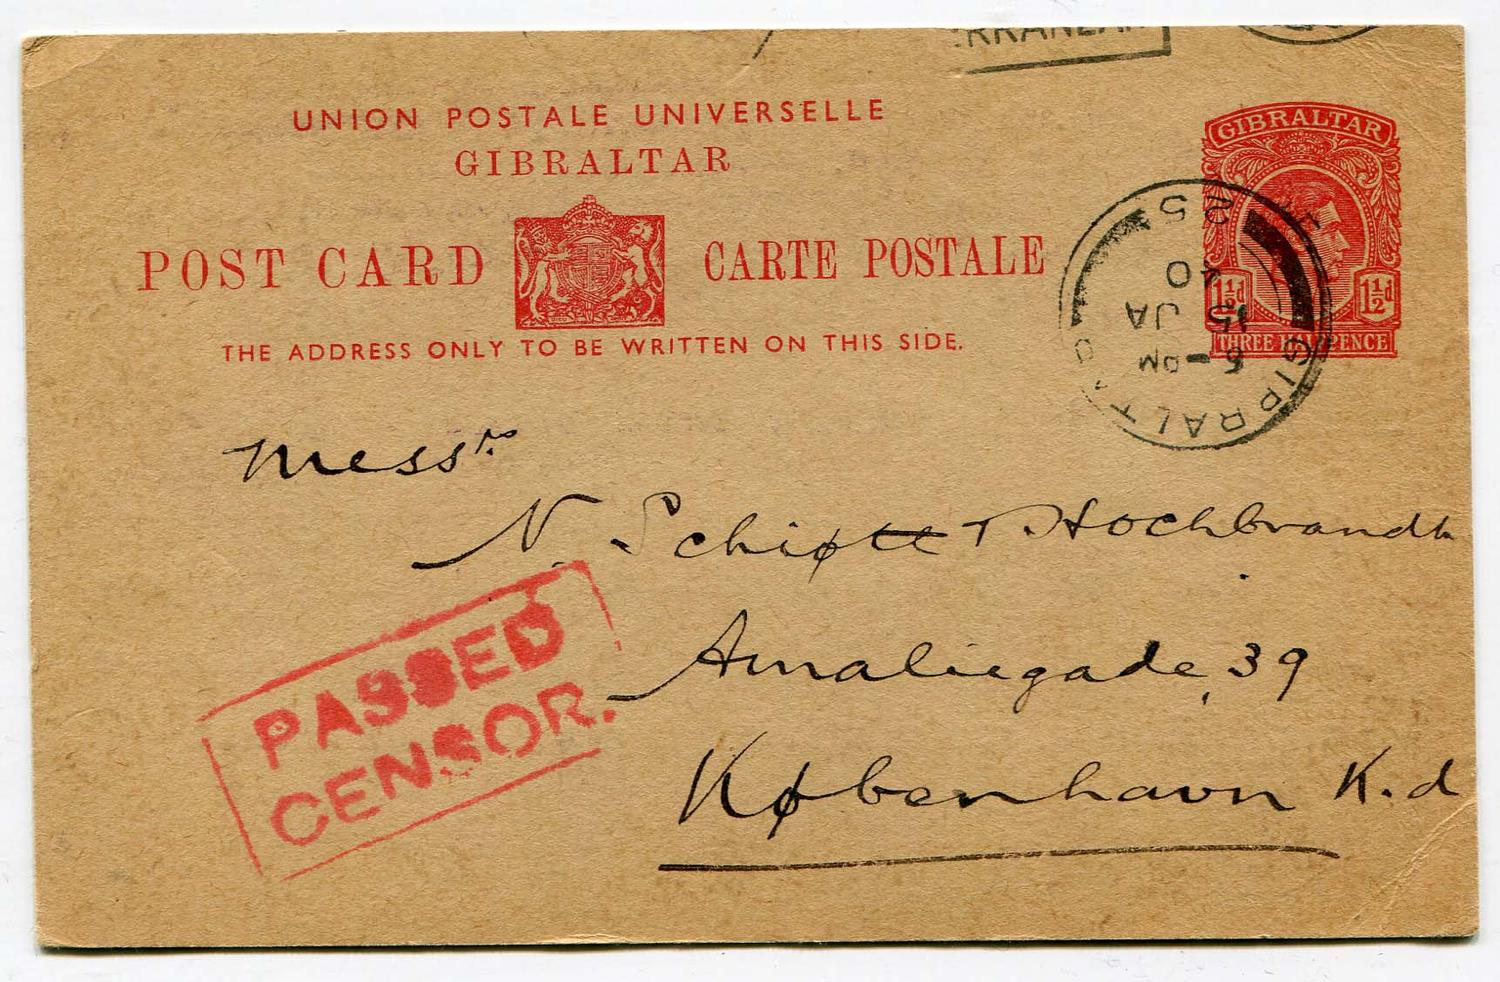 UNION POSTALE UNIVERSELLE
GIBRALTAR
POST CARD CARTE POSTALE
THE ADDRESS ONLY TO BE WRITTEN ON THIS SIDE.
GIBRALTAR
1½d 1½d
THREE HALFPENCE
GIBRALTAR
PM
15 JA
40
25
Messrs
N. Schiøtt & Hochbrandt
Amaliegade, 39
København K.d
PASSED
CENSOR.